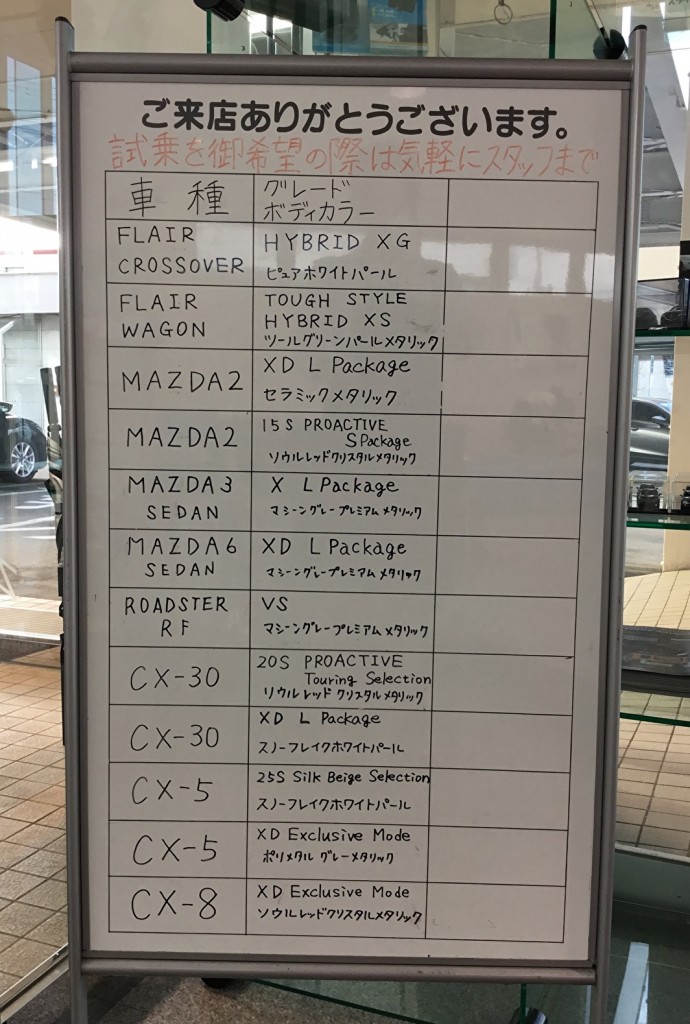 ご来店ありがとうございます。
試乗を御希望の際は気軽にスタッフまで
車種
グレード
ボディカラー
FLAIR
CROSSOVER
HYBRID XG
ピュアホワイトパール
FLAIR
WAGON
TOUGH STYLE
HYBRID XS
ツールグリーンパールメタリック
MAZDA2
XD L Package
セラミックメタリック
MAZDA2
15S PROACTIVE
S Package
ソウルレッドクリスタルメタリック
MAZDA3
SEDAN
X L Package
マシーングレープレミアムメタリック
MAZDA6
SEDAN
XD L Package
マシーングレープレミアムメタリック
ROADSTER
RF
VS
マシーングレープレミアムメタリック
CX-30
20S PROACTIVE
Touring Selection
ソウルレッドクリスタルメタリック
CX-30
XD L Package
スノーフレイクホワイトパール
CX-5
25S Silk Beige Selection
スノーフレイクホワイトパール
CX-5
XD Exclusive Mode
ポリメタルグレーメタリック
CX-8
XD Exclusive Mode
ソウルレッドクリスタルメタリック